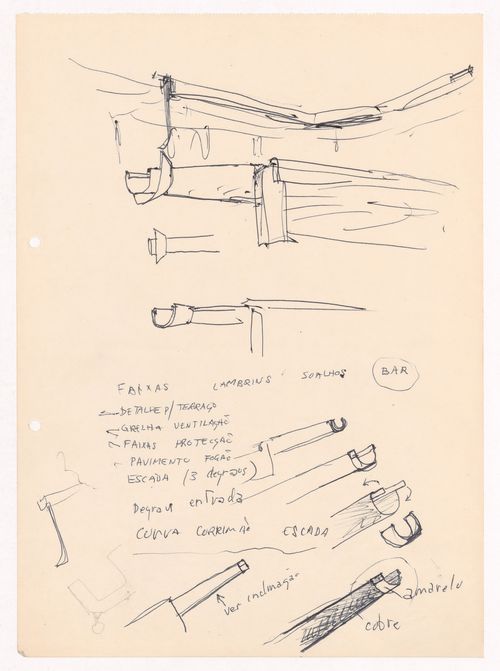 FAIXAS LAMBRINS SOALHOS BAR
DETALHE P/ TERRAÇO
GRELHA VENTILAÇÃO
FAIXAS PROTECÇÃO
PAVIMENTO FOGÃO
ESCADA (3 degraus)
Degrau entrada
CURVA CORRIMÃO ESCADA
ver inclinação
amarelo
cobre